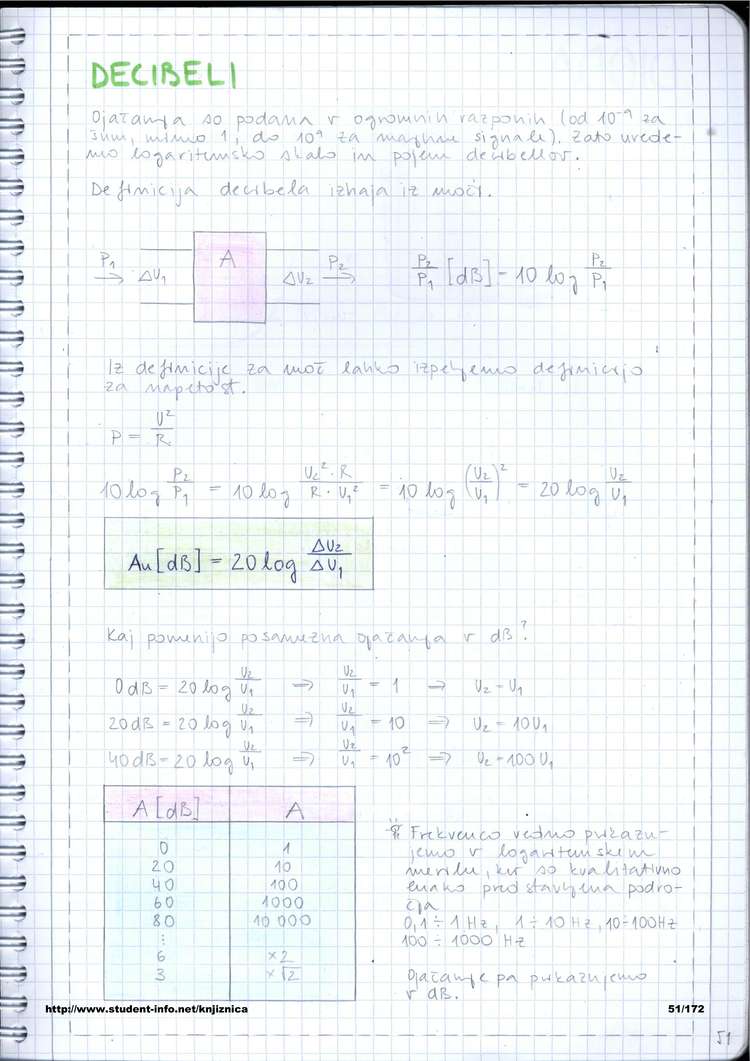 DECIBELI
Ojačanja so podana v ogromnih razponih (od 10⁻⁹ za
šum, mimo 1, do 10⁹ za majhne signale). Zato uvede-
mo logaritemsko skalo in pojem decibelov.
Definicija decibela izhaja iz moči.
P₁ → ΔU₁ A ΔU₂ P₂ → P₂/P₁ [dB] = 10 log P₂/P₁
Iz definicije za moč lahko izpeljemo definicijo
za napetost.
P = U²/R
10 log P₂/P₁ = 10 log U₂²·R/R·U₁² = 10 log (U₂/U₁)² = 20 log U₂/U₁
Au [dB] = 20 log ΔU₂/ΔU₁
Kaj pomenijo posamezna ojačanja v dB?
0 dB = 20 log U₂/U₁ ⇒ U₂/U₁ = 1 ⇒ U₂ = U₁
20 dB = 20 log U₂/U₁ ⇒ U₂/U₁ = 10 ⇒ U₂ = 10 U₁
40 dB = 20 log U₂/U₁ ⇒ U₂/U₁ = 10² ⇒ U₂ = 100 U₁
A [dB] A
0 1
20 10
40 100
60 1000
80 10 000
⋮
6 ×2
3 ×√2
Frekvenco vedno prikazu-
jemo v logaritemskem
merilu, ker so kvalitativno
enako predstavljena podro-
čja
0,1 ÷ 1 Hz, 1 ÷ 10 Hz, 10 ÷ 100 Hz
100 ÷ 1000 Hz
Ojačanje pa prikazujemo
v dB.
http://www.student-info.net/knjiznica 51/172
51